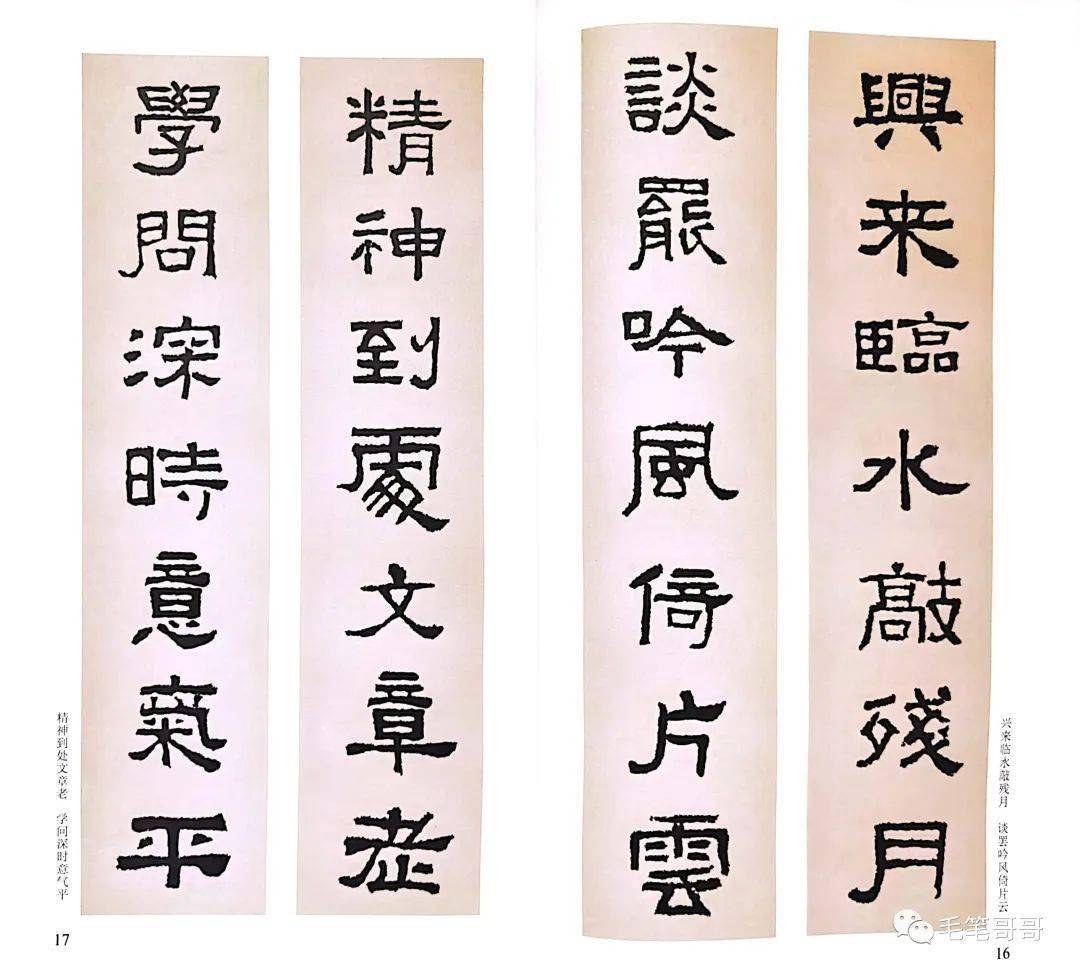 興来臨水敲殘月
談罷吟風倚片雲
兴来临水敲残月 谈罢吟风倚片云
16
精神到處文章老
學問深時意氣平
精神到处文章老 学问深时意气平
17
毛笔哥哥